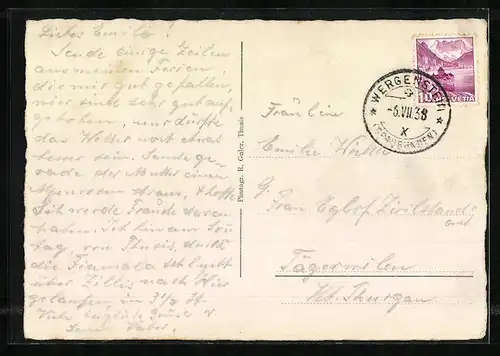 Liebes Emilie!
Sende einige Zeilen
aus meinen Ferien,
die mir gut gefallen,
wir sind sehr gut auf-
gehoben, nur dürfte
das Wetter noch etwas
besser sein. Sende ge-
rade der Mutter einen
Alpenrosen strauss, hoffe
Sie werde Freude daran
haben. Ich bin am Son
tag, von Thusis, durch
die Viamala schlucht
über Zillis nach hier
gelaufen in 3 1/2 St.
Viele herzliche Grüsse v.
Photogr. E. Guler, Thusis
HELVETIA
10
WERGENSTEIN
-6.VII.38
X
(GRAUBÜNDEN)
Fräulein
Emilie
G.
Frau Egloff Zivilstands
amt
Tägerwilen
Kt. Thurgau